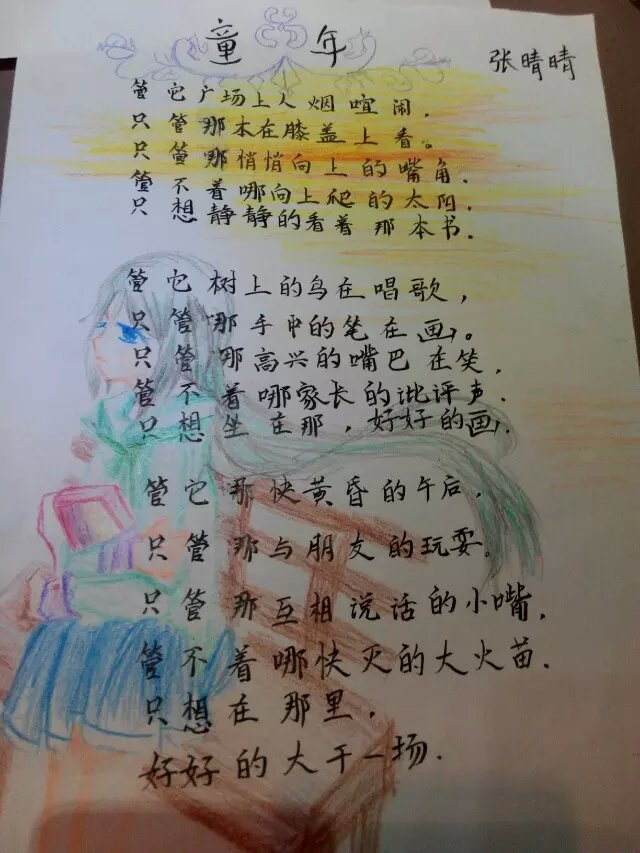 童年
张晴晴
管它广场上人烟喧闹,
只管那本在膝盖上看。
只管那悄悄向上的嘴角.
管不着哪向上爬的太阳,
只想静静的看着那本书.
管它树上的鸟在唱歌,
只管那手中的笔在画。
只管那高兴的嘴巴在笑,
管不着哪家长的批评声.
只想坐在那,好好的画.
管它那快黄昏的午后,
只管那与朋友的玩耍。
只管那互相说话的小嘴,
管不着哪快灭的大火苗.
只想在那里,
好好的大干一场.